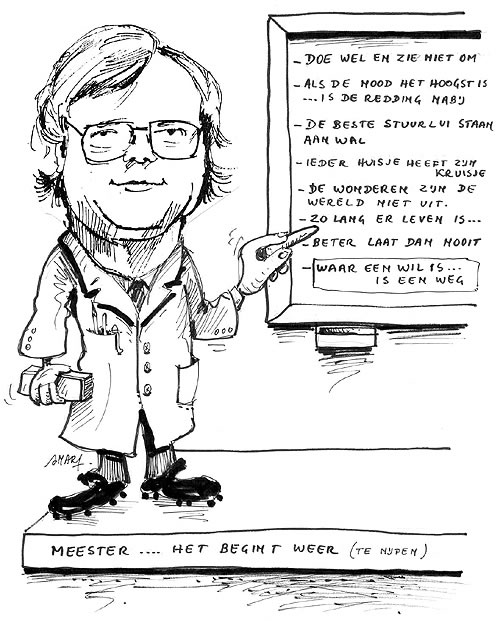 - DOE WEL EN ZIE NIET OM
- ALS DE NOOD HET HOOGST IS
... IS DE REDDING NABIJ
- DE BESTE STUURLUI STAAN
AAN WAL
- IEDER HUISJE HEEFT ZIJN
KRUISJE
- DE WONDEREN ZIJN DE
WERELD NIET UIT.
- ZO LANG ER LEVEN IS...
- BETER LAAT DAN NOOIT
- WAAR EEN WIL IS...
IS EEN WEG
AMAR1.
MEESTER .... HET BEGINT WEER (TE NIJPEN)